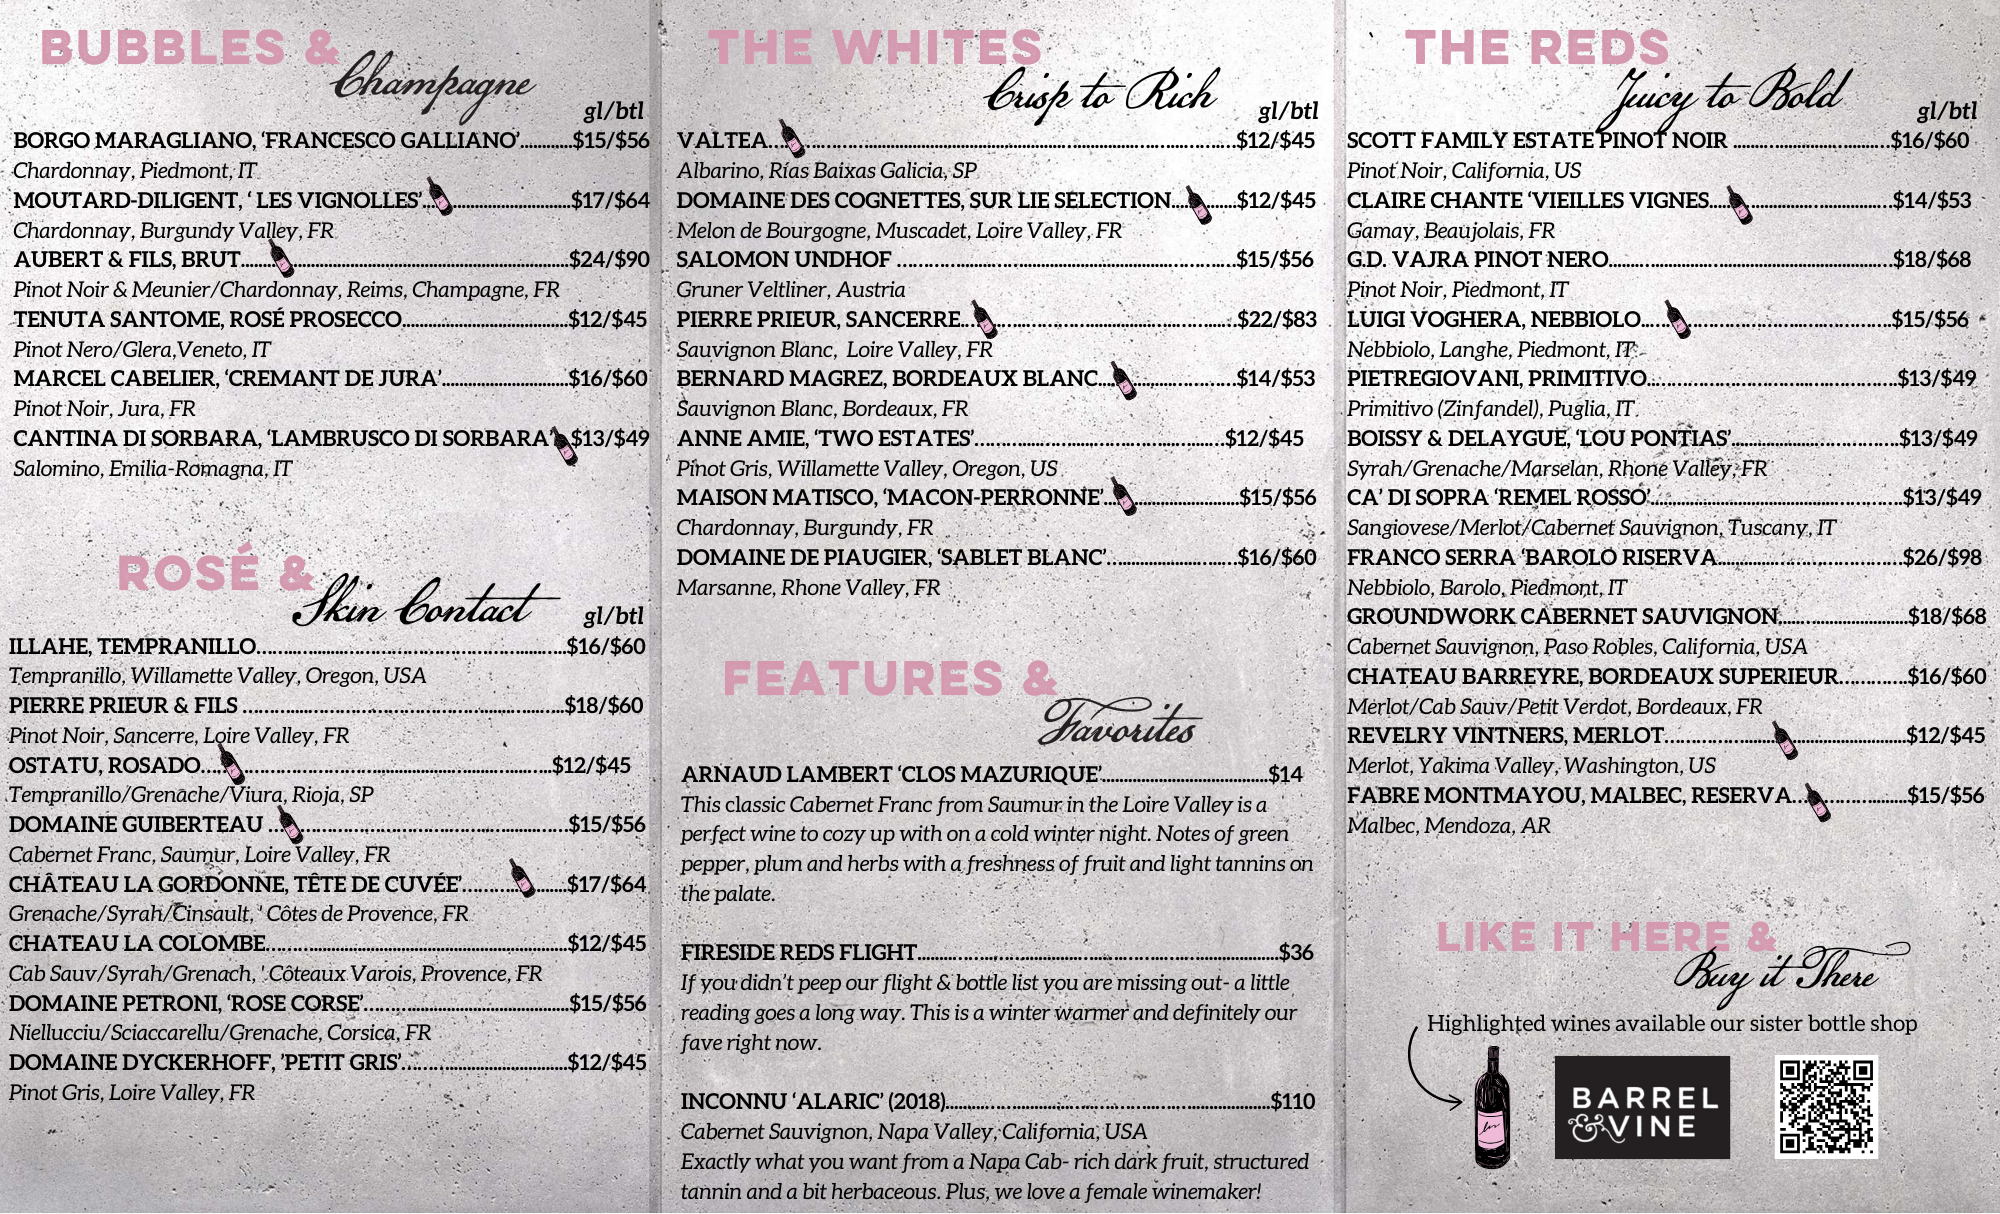 BUBBLES &
Champagne
gl/btl
BORGO MARAGLIANO, ‘FRANCESCO GALLIANO’............$15/$56
Chardonnay, Piedmont, IT
MOUTARD-DILIGENT, ‘ LES VIGNOLLES’..............................$17/$64
Chardonnay, Burgundy Valley, FR
AUBERT & FILS, BRUT..............................$24/$90
Pinot Noir & Meunier/Chardonnay, Reims, Champagne, FR
TENUTA SANTOME, ROSÉ PROSECCO..............................$12/$45
Pinot Nero/Glera,Veneto, IT
MARCEL CABELIER, ‘CREMANT DE JURA’..............................$16/$60
Pinot Noir, Jura, FR
CANTINA DI SORBARA, ‘LAMBRUSCO DI SORBARA’ $13/$49
Salomino, Emilia-Romagna, IT
ROSÉ &
Skin Contact
gl/btl
ILLAHE, TEMPRANILLO..............................$16/$60
Tempranillo, Willamette Valley, Oregon, USA
PIERRE PRIEUR & FILS ..............................$18/$60
Pinot Noir, Sancerre, Loire Valley, FR
OSTATU, ROSADO..............................$12/$45
Tempranillo/Grenache/Viura, Rioja, SP
DOMAINE GUIBERTEAU ..............................$15/$56
Cabernet Franc, Saumur, Loire Valley, FR
CHÂTEAU LA GORDONNE, TÊTE DE CUVÉE’....................$17/$64
Grenache/Syrah/Cinsault, ' Côtes de Provence, FR
CHATEAU LA COLOMBE..............................$12/$45
Cab Sauv/Syrah/Grenach, ' Côteaux Varois, Provence, FR
DOMAINE PETRONI, ‘ROSE CORSE’..............................$15/$56
Niellucciu/Sciaccarellu/Grenache, Corsica, FR
DOMAINE DYCKERHOFF, ’PETIT GRIS’..............................$12/$45
Pinot Gris, Loire Valley, FR
THE WHITES
Crisp to Rich
gl/btl
VALTEA..............................$12/$45
Albarino, Rías Baixas Galicia, SP
DOMAINE DES COGNETTES, SUR LIE SELECTION............$12/$45
Melon de Bourgogne, Muscadet, Loire Valley, FR
SALOMON UNDHOF ..............................$15/$56
Gruner Veltliner, Austria
PIERRE PRIEUR, SANCERRE..............................$22/$83
Sauvignon Blanc, Loire Valley, FR
BERNARD MAGREZ, BORDEAUX BLANC....................$14/$53
Sauvignon Blanc, Bordeaux, FR
ANNE AMIE, ‘TWO ESTATES’..............................$12/$45
Pinot Gris, Willamette Valley, Oregon, US
MAISON MATISCO, ‘MACON-PERRONNE’....................$15/$56
Chardonnay, Burgundy, FR
DOMAINE DE PIAUGIER, ‘SABLET BLANC’....................$16/$60
Marsanne, Rhone Valley, FR
FEATURES &
Favorites
ARNAUD LAMBERT ‘CLOS MAZURIQUE’..............................$14
This classic Cabernet Franc from Saumur in the Loire Valley is a
perfect wine to cozy up with on a cold winter night. Notes of green
pepper, plum and herbs with a freshness of fruit and light tannins on
the palate.
FIRESIDE REDS FLIGHT..............................$36
If you didn’t peep our flight & bottle list you are missing out- a little
reading goes a long way. This is a winter warmer and definitely our
fave right now.
INCONNU ‘ALARIC’ (2018)..............................$110
Cabernet Sauvignon, Napa Valley, California, USA
Exactly what you want from a Napa Cab- rich dark fruit, structured
tannin and a bit herbaceous. Plus, we love a female winemaker!
THE REDS
Juicy to Bold
gl/btl
SCOTT FAMILY ESTATE PINOT NOIR ..............................$16/$60
Pinot Noir, California, US
CLAIRE CHANTE ‘VIEILLES VIGNES..............................$14/$53
Gamay, Beaujolais, FR
G.D. VAJRA PINOT NERO..............................$18/$68
Pinot Noir, Piedmont, IT
LUIGI VOGHERA, NEBBIOLO..............................$15/$56
Nebbiolo, Langhe, Piedmont, IT
PIETREGIOVANI, PRIMITIVO..............................$13/$49
Primitivo (Zinfandel), Puglia, IT
BOISSY & DELAYGUE, ‘LOU PONTIAS’..............................$13/$49
Syrah/Grenache/Marselan, Rhone Valley, FR
CA’ DI SOPRA ‘REMEL ROSSO’..............................$13/$49
Sangiovese/Merlot/Cabernet Sauvignon, Tuscany, IT
FRANCO SERRA ‘BAROLO RISERVA..............................$26/$98
Nebbiolo, Barolo, Piedmont, IT
GROUNDWORK CABERNET SAUVIGNON....................$18/$68
Cabernet Sauvignon, Paso Robles, California, USA
CHATEAU BARREYRE, BORDEAUX SUPERIEUR............$16/$60
Merlot/Cab Sauv/Petit Verdot, Bordeaux, FR
REVELRY VINTNERS, MERLOT..............................$12/$45
Merlot, Yakima Valley, Washington, US
FABRE MONTMAYOU, MALBEC, RESERVA....................$15/$56
Malbec, Mendoza, AR
LIKE IT HERE &
Buy it There
Highlighted wines available our sister bottle shop
BARREL
&VINE